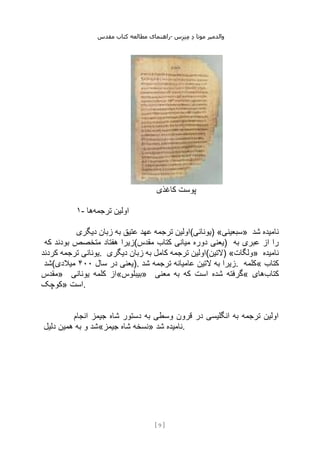 والدمیر مونا دِ مِیرس -راهنمای مطالعه کتاب مقدس
پوست کاغذی
۱- اولین ترجمه‌ها
نامیده شد «سبعینی» (یونانی)اولین ترجمه عهد عتیق به زبان دیگری
را از عبری به (یعنی دوره میانی کتاب مقدس)زیرا هفتاد متخصص بودند که
نامیده «ولگات» (لاتین)اولین ترجمه کامل به زبان دیگری .یونانی ترجمه کردند
کتاب» کلمه .زیرا به لاتین عامیانه ترجمه شد .(یعنی در سال ۴۰۰ میلادی)شد
کتاب‌های» گرفته شده است که به معنی «بیبلوس»از کلمه یونانی «مقدس
.است «کوچک
اولین ترجمه به انگلیسی در قرون وسطی به دستور شاه جیمز انجام
.نامیده شد «نسخه شاه جیمز»شد و به همین دلیل
|9|